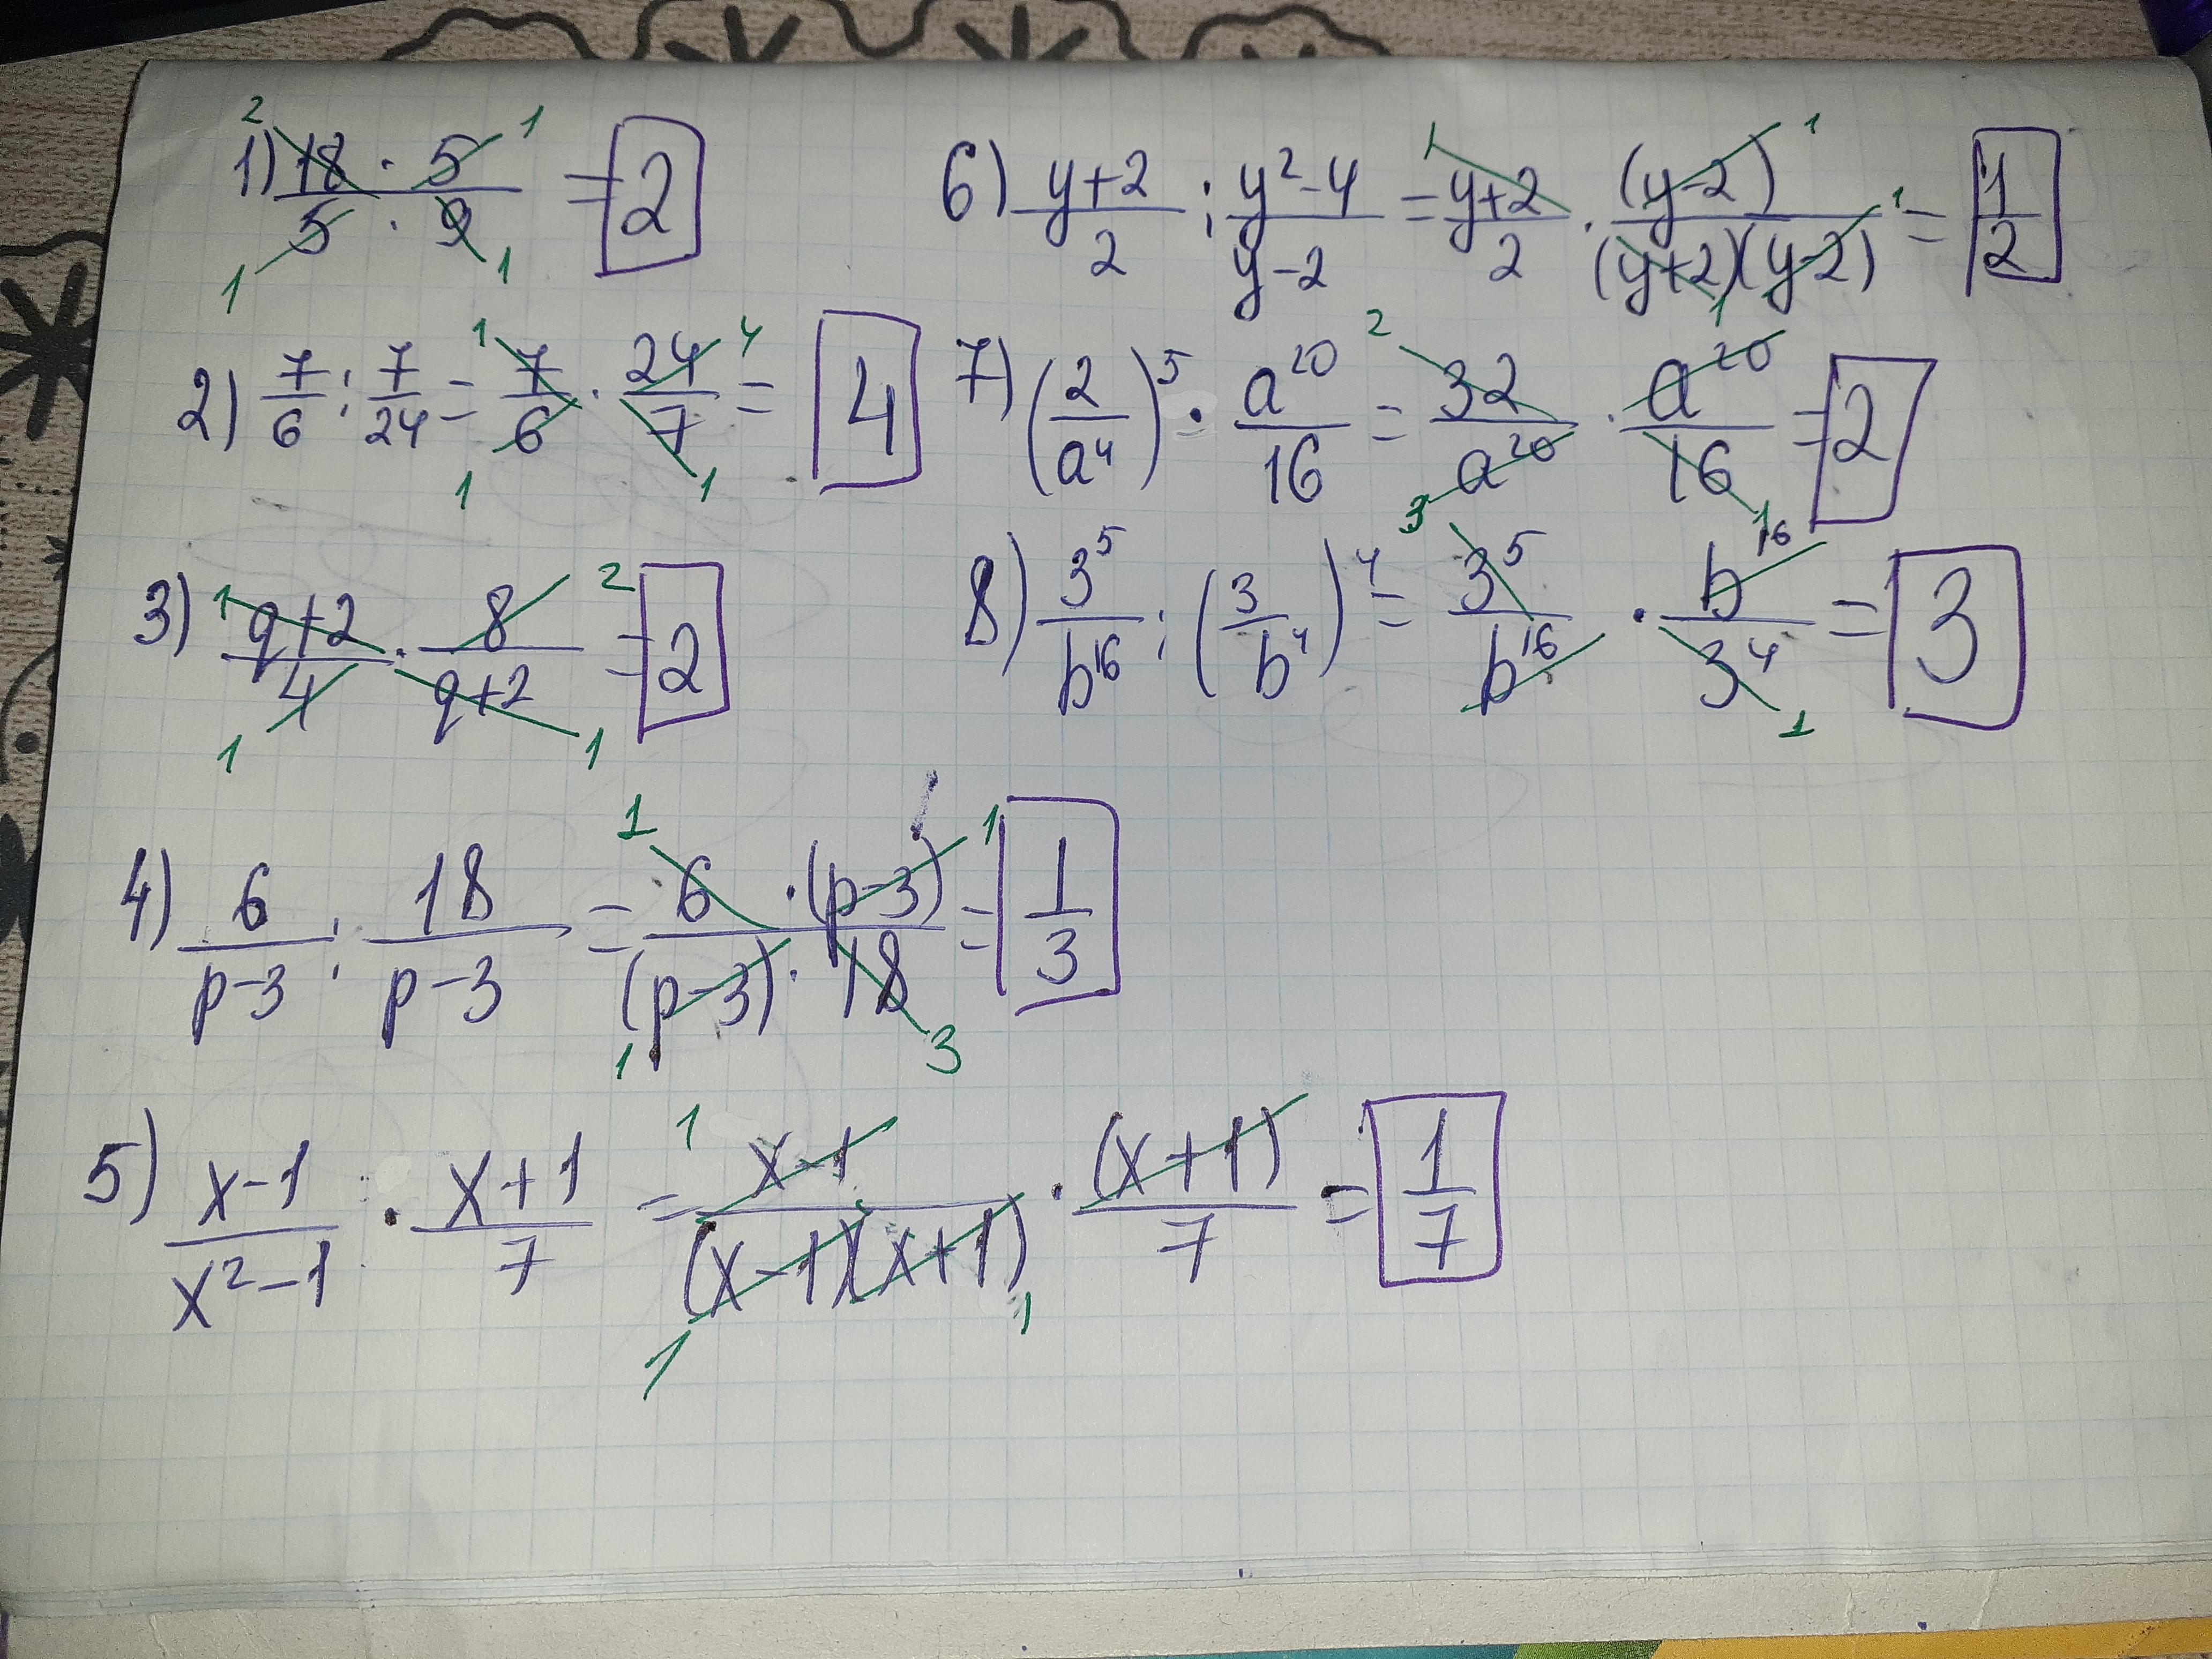 1) (18 · 5)/(5 · 9) = 2
2) 7/6 : 7/24 = 7/6 · 24/7 = 4
3) (q+2)/4 · 8/(q+2) = 2
4) 6/(p-3) : 18/(p-3) = (6 · (p-3))/((p-3) · 18) = 1/3
5) (x-1)/(x²-1) · (x+1)/7 = (x-1)/((x-1)(x+1)) · (x+1)/7 = 1/7
6) (y+2)/2 : (y²-4)/(y-2) = (y+2)/2 · (y-2)/((y+2)(y-2)) = 1/2
7) (2/a⁴)⁵ · a²⁰/16 = 32/a²⁰ · a²⁰/16 = 2
8) 3⁵/b¹⁶ : (3/b⁴)⁴ = 3⁵/b¹⁶ · b¹⁶/3⁴ = 3